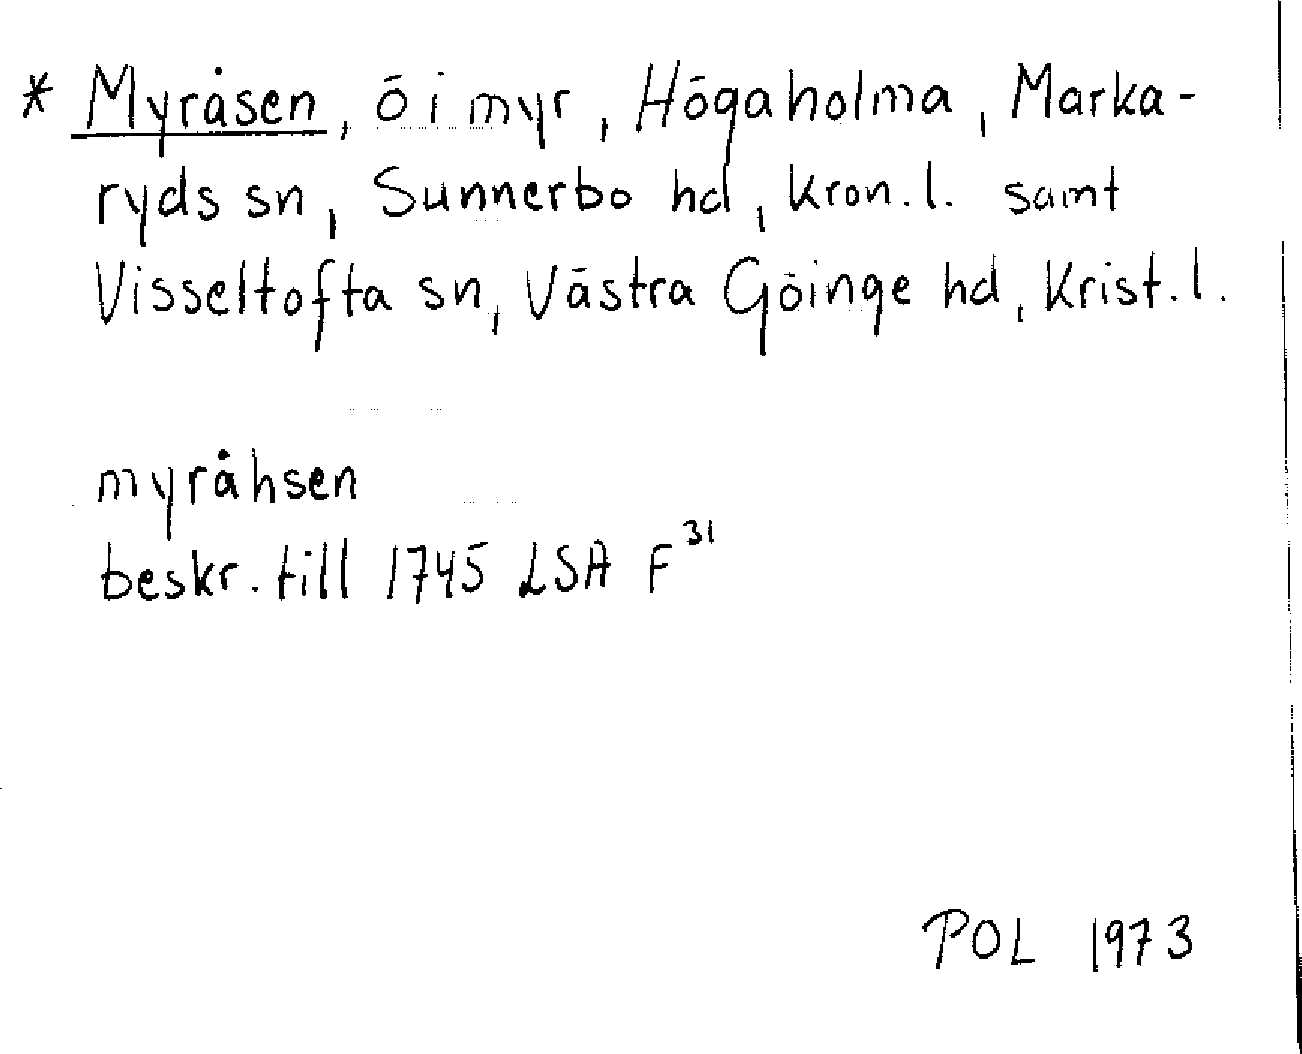 * Myråsen, ö i myr, Högaholma, Marka-
ryds sn, Sunnerbo hd, Kron.l. samt
Visseltofta sn, Västra Göinge hd, Krist.l.
myråhsen
beskr. till 1745 LSA F³¹
POL 1973